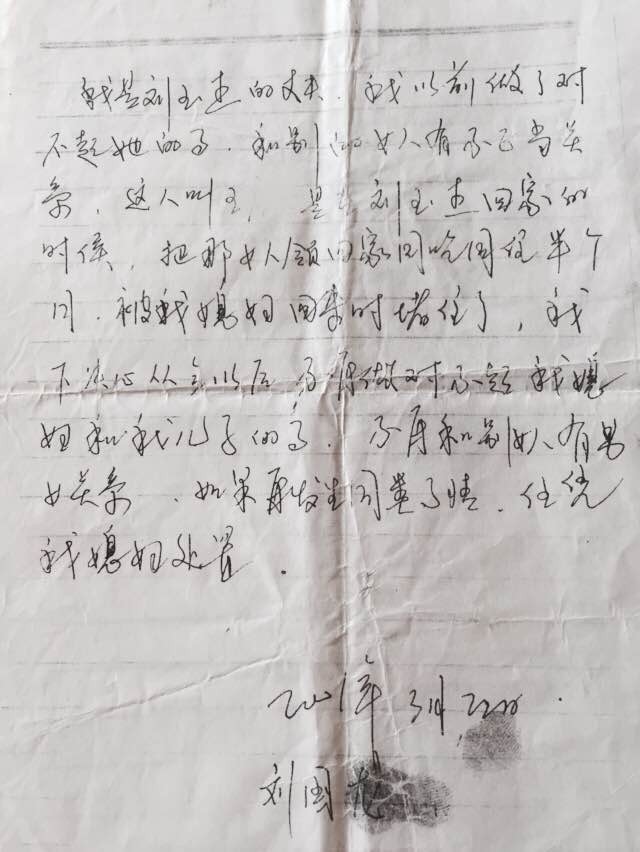 我是刘玉杰的丈夫．我以前做了对
不起她的事．和别的女人有不正当关
系．这人叫王，是在刘玉杰回家的
时候，把那女人领回家同吃同住半个
月．被我媳妇回来时堵住了，我
下决心从今以后，不再做对不起我媳
妇和我儿子的事．不再和别女人有男
女关系．如果再发生同类事情．任凭
我媳妇处置．
刘国龙